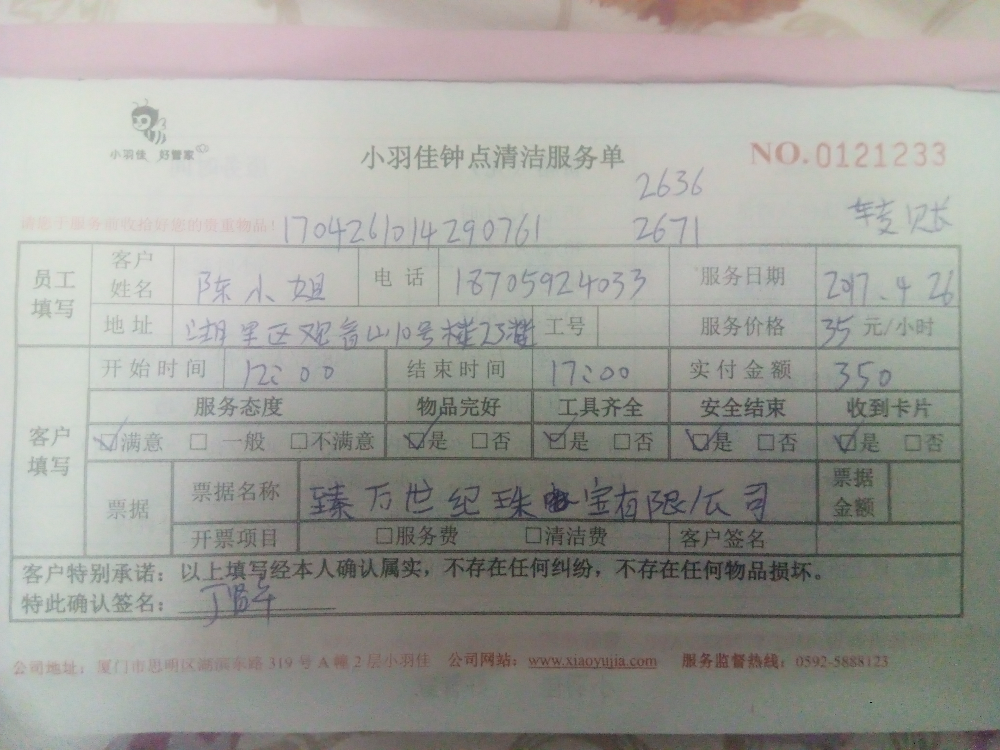 小羽佳 好管家
小羽佳钟点清洁服务单
NO.0121233
2636
请您于服务前收拾好您的贵重物品!
1704261014290761
2671
转贝长
员工填写
客户姓名 陈小姐 电话 18705924033 服务日期 2017.4.26
地址 湖里区观音山10号楼23楼 工号 服务价格 35 元/小时
客户填写
开始时间 12:00 结束时间 17:00 实付金额 350
服务态度 物品完好 工具齐全 安全结束 收到卡片
☑满意 □一般 □不满意 ☑是 □否 ☑是 □否 ☑是 □否 ☑是 □否
票据 票据名称 臻万世纪珠宝有限公司 票据金额
开票项目 □服务费 □清洁费 客户签名
客户特别承诺：以上填写经本人确认属实，不存在任何纠纷，不存在任何物品损坏。
特此确认签名：
公司地址：厦门市思明区湖滨东路 319 号 A 幢 2 层小羽佳 公司网站：www.xiaoyujia.com 服务监督热线：0592-5888123